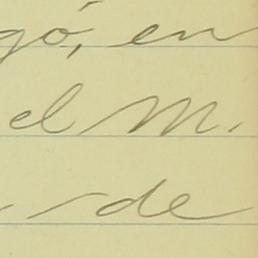 gó, en
el M.
- - de